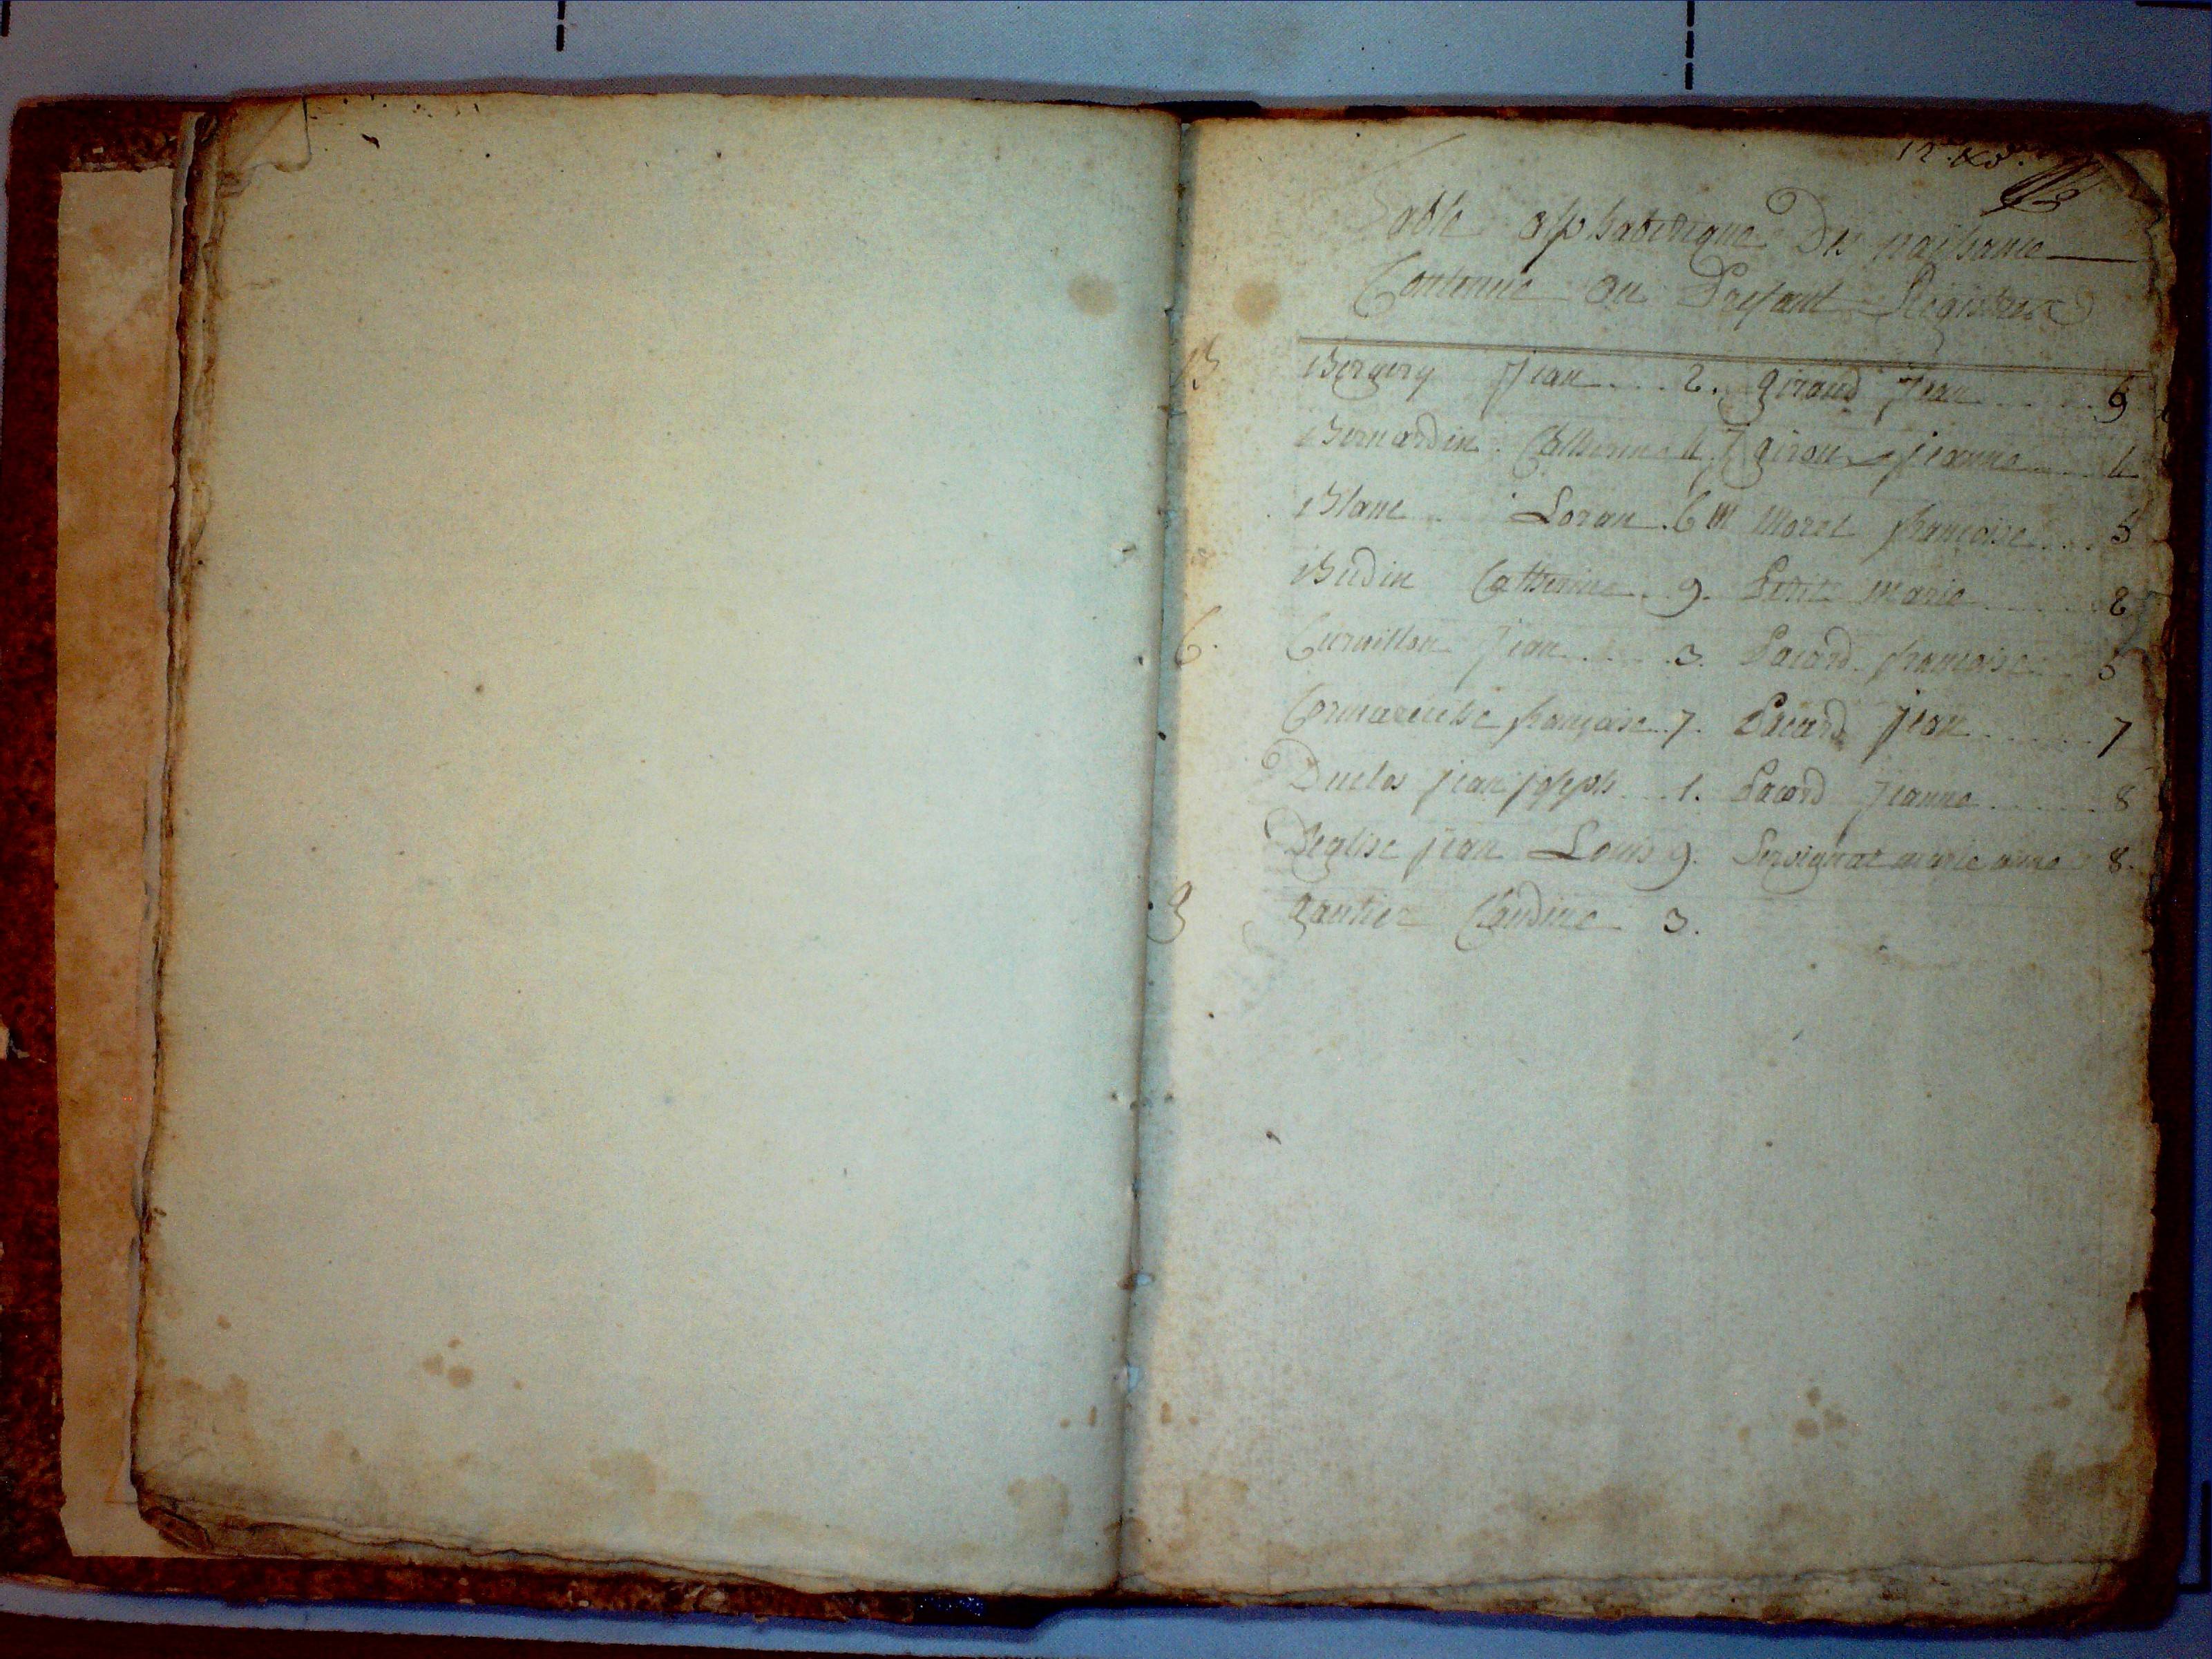 Table alphabetique Des naissance
Contenue au Present Registre
B Bergery Jean 2. giraud Jean 6
Bernardin Catherine 4. J giron jeanne 4
Blanc Loran 6 M Morel francoise 5
Budin Catherine 9. Petit marie 2
C. Curnillon Jean 3. Pacard francoise 5
francoise 7. Pacard Jean 7
Duclos jean joseph 1. Pacard Jeanne 8
Deglise jean Louis 9. Servignat marie anne 8.
g gautier Claudine 3.